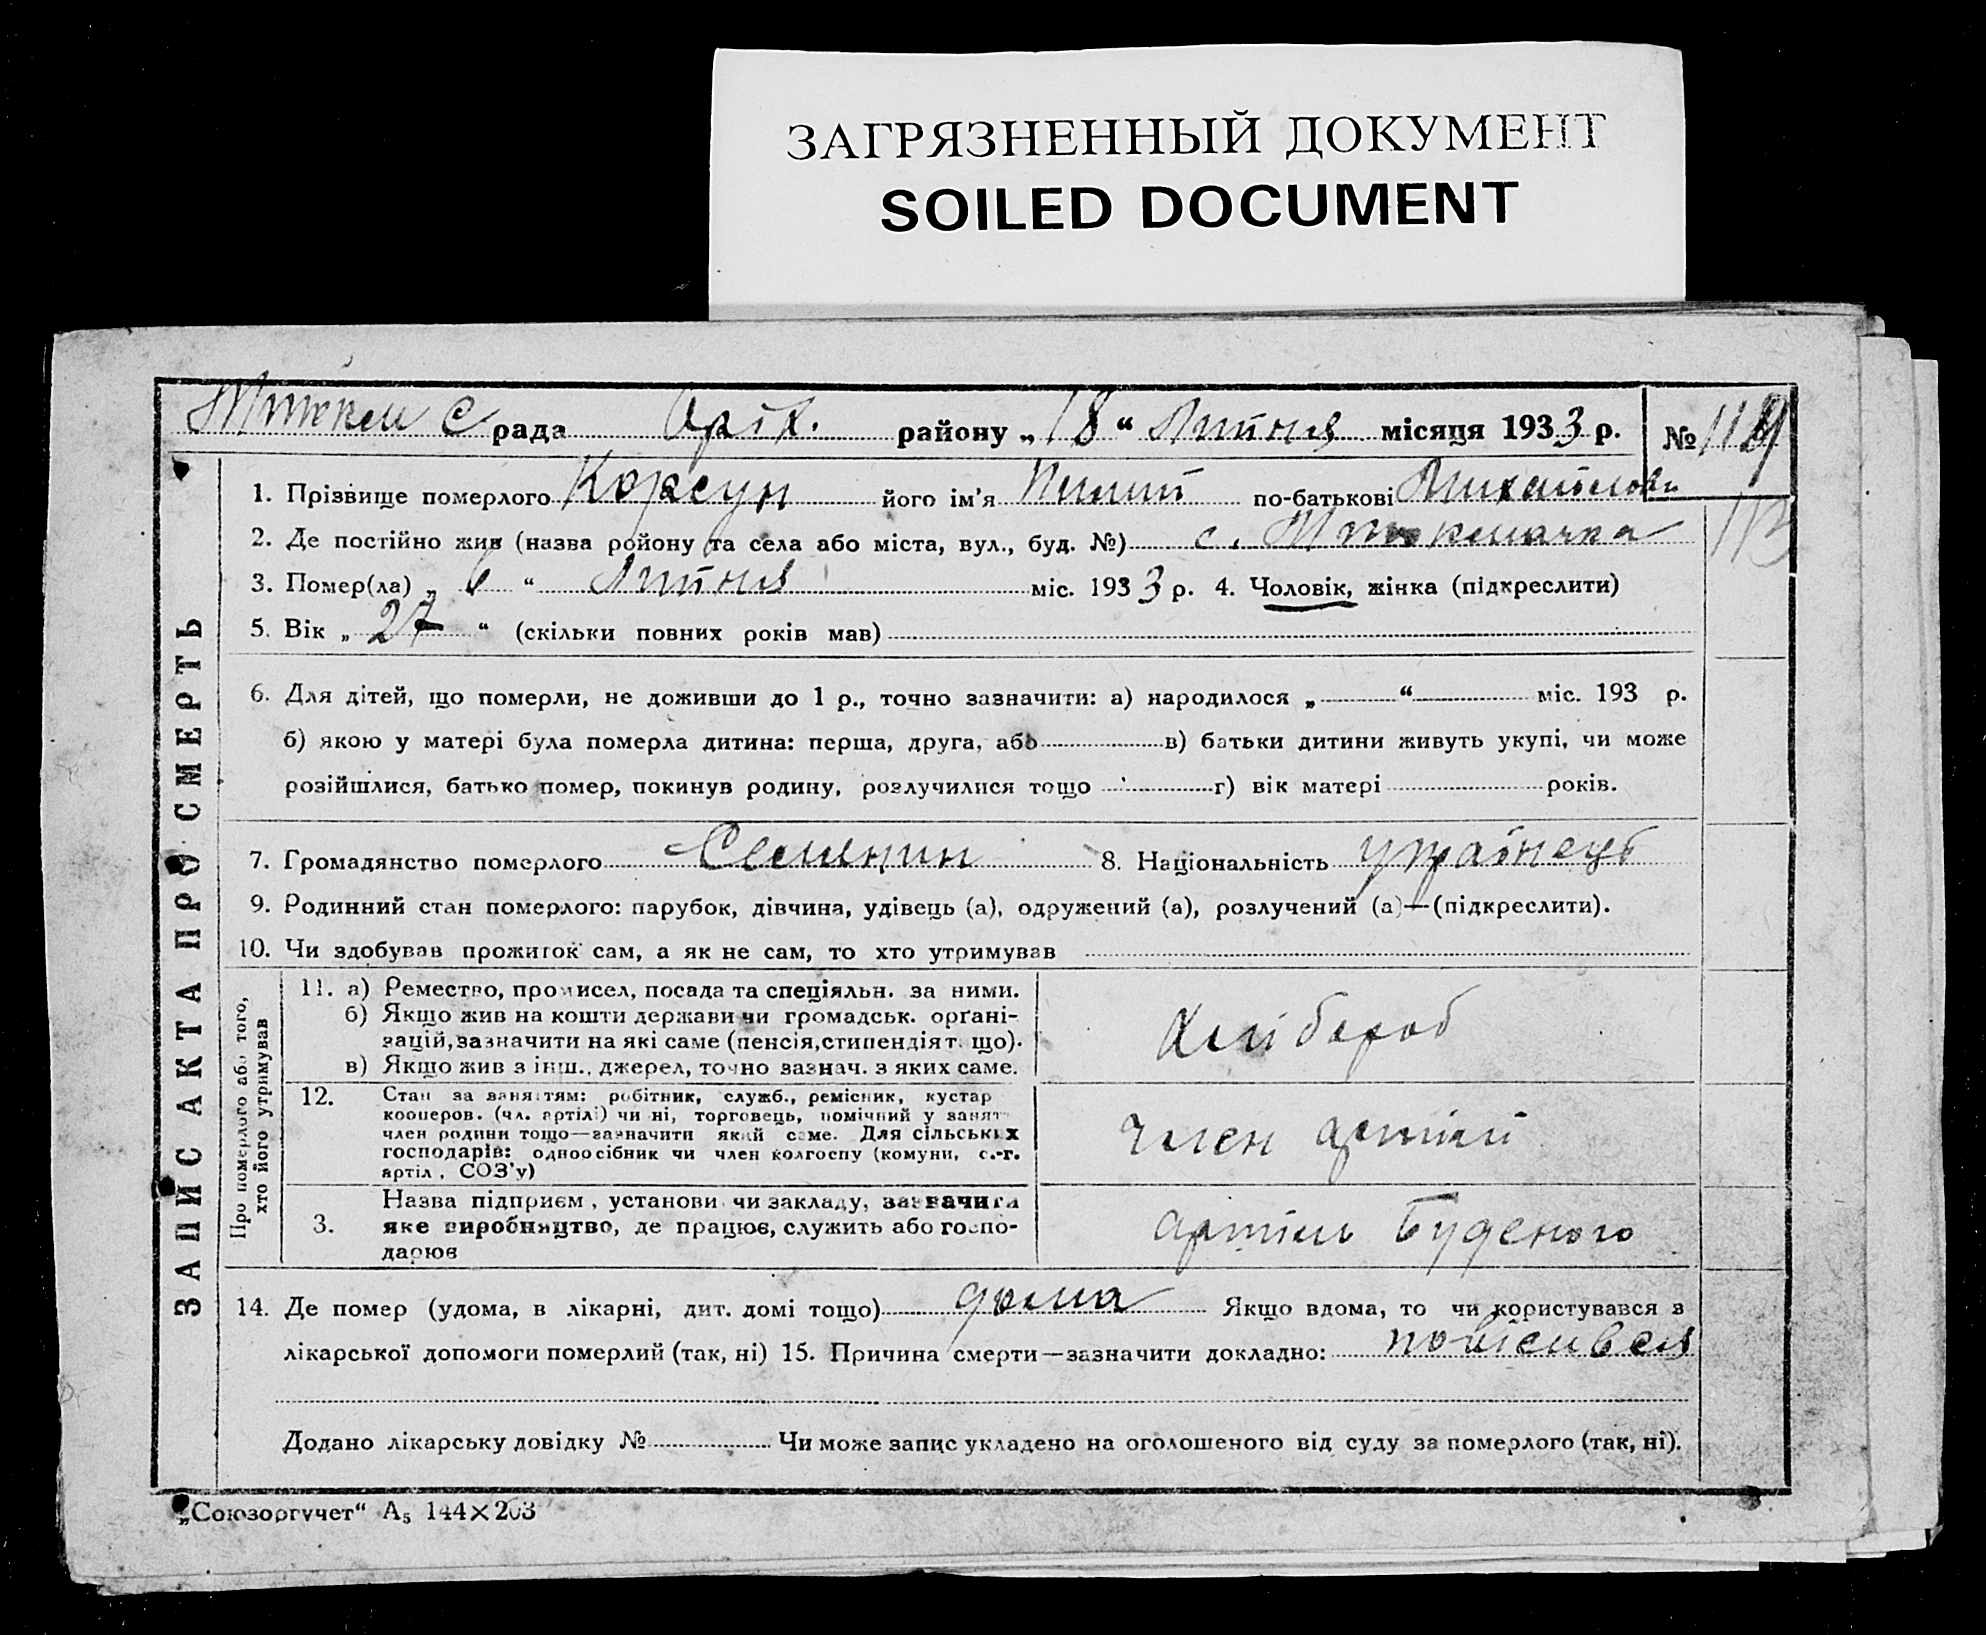 ЗАГРЯЗНЕННЫЙ ДОКУМЕНТ
SOILED DOCUMENT
рада Оріх. району „18“ Липня місяця 1933 р. № 119
1. Прізвище померлого Корсун його ім'я Пилип по-батькові Михайлов
2. Де постійно жив (назва ройону та села або міста, вул., буд. №) с.
3. Помер(ла) „6“ Липня міс. 1933 р. 4. Чоловік, жінка (підкреслити)
5. Вік „27“ (скільки повних років мав)
6. Для дітей, що померли, не доживши до 1 р., точно зазначити: а) народилося „ “ міс. 193 р.
б) якою у матері була померла дитина: перша, друга, або в) батьки дитини живуть укупі, чи може
розійшлися, батько помер, покинув родину, розлучилися тощо г) вік матері років.
7. Громадянство померлого Селянин 8. Національність українець
9. Родинний стан померлого: парубок, дівчина, удівець (а), одружений (а), розлучений (а)—(підкреслити).
10. Чи здобував прожиток сам, а як не сам, то хто утримував
ЗАПИС АКТА ПРО СМЕРТЬ
Про померлого або того,
хто його утримував
11. а) Ремество, промисел, посада та спеціяльн. за ними.
б) Якщо жив на кошти держави чи громадськ. орґані-
зацій, зазначити на які саме (пенсія, стипендія т. що).
в) Якщо жив з інш., джерел, точно зазнач. з яких саме.
Хлібороб
12. Стан за заняттям: робітник, служб., ремісник, кустар
кооперов. (чл. артілі) чи ні, торговець, помічний у занят
член родини тощо—зазначити який саме. Для сільських
господарів: одноосібник чи член колгоспу (комуни, с.-г.
артіл, СОЗ'у)
член артілі
3. Назва підприєм, установи чи закладу, зазначити
яке виробництво, де працює, служить або госпо-
дарює
артіль Буденого
14. Де помер (удома, в лікарні, дит. домі тощо) дома Якщо вдома, то чи користувався з
лікарської допомоги померлий (так, ні) 15. Причина смерти—зазначити докладно: повісився
Додано лікарську довідку № Чи може запис укладено на оголошеного від суду за померлого (так, ні).
„Союзоргучет“ А₅ 144×203